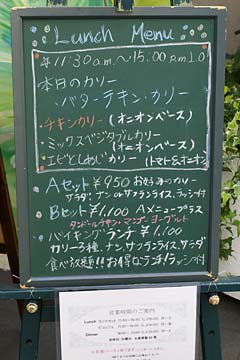 Lunch Menu
11:30a.m.~15:00p.m L.O
本日のカリー
バターチキン・カリー
・チキンカリー(オニオンベース)
・ミックスベジタブルカリー
(オニオンベース)
・エビとしめじカリー(トマト&オニオン)
Aセット¥950 お好みのカリー
サラダ ナンorサフランライス、ラッシー付
Bセット¥1,100 Aメニュープラス
タンドールチキン・マンゴーヨーグルト
バイキングランチ ¥1,100
カリー3種、ナン、サフランライス、サラダ
食べ放題!!お得なランチ!ラッシー付
営業時間のご案内
Lunch
Dinner